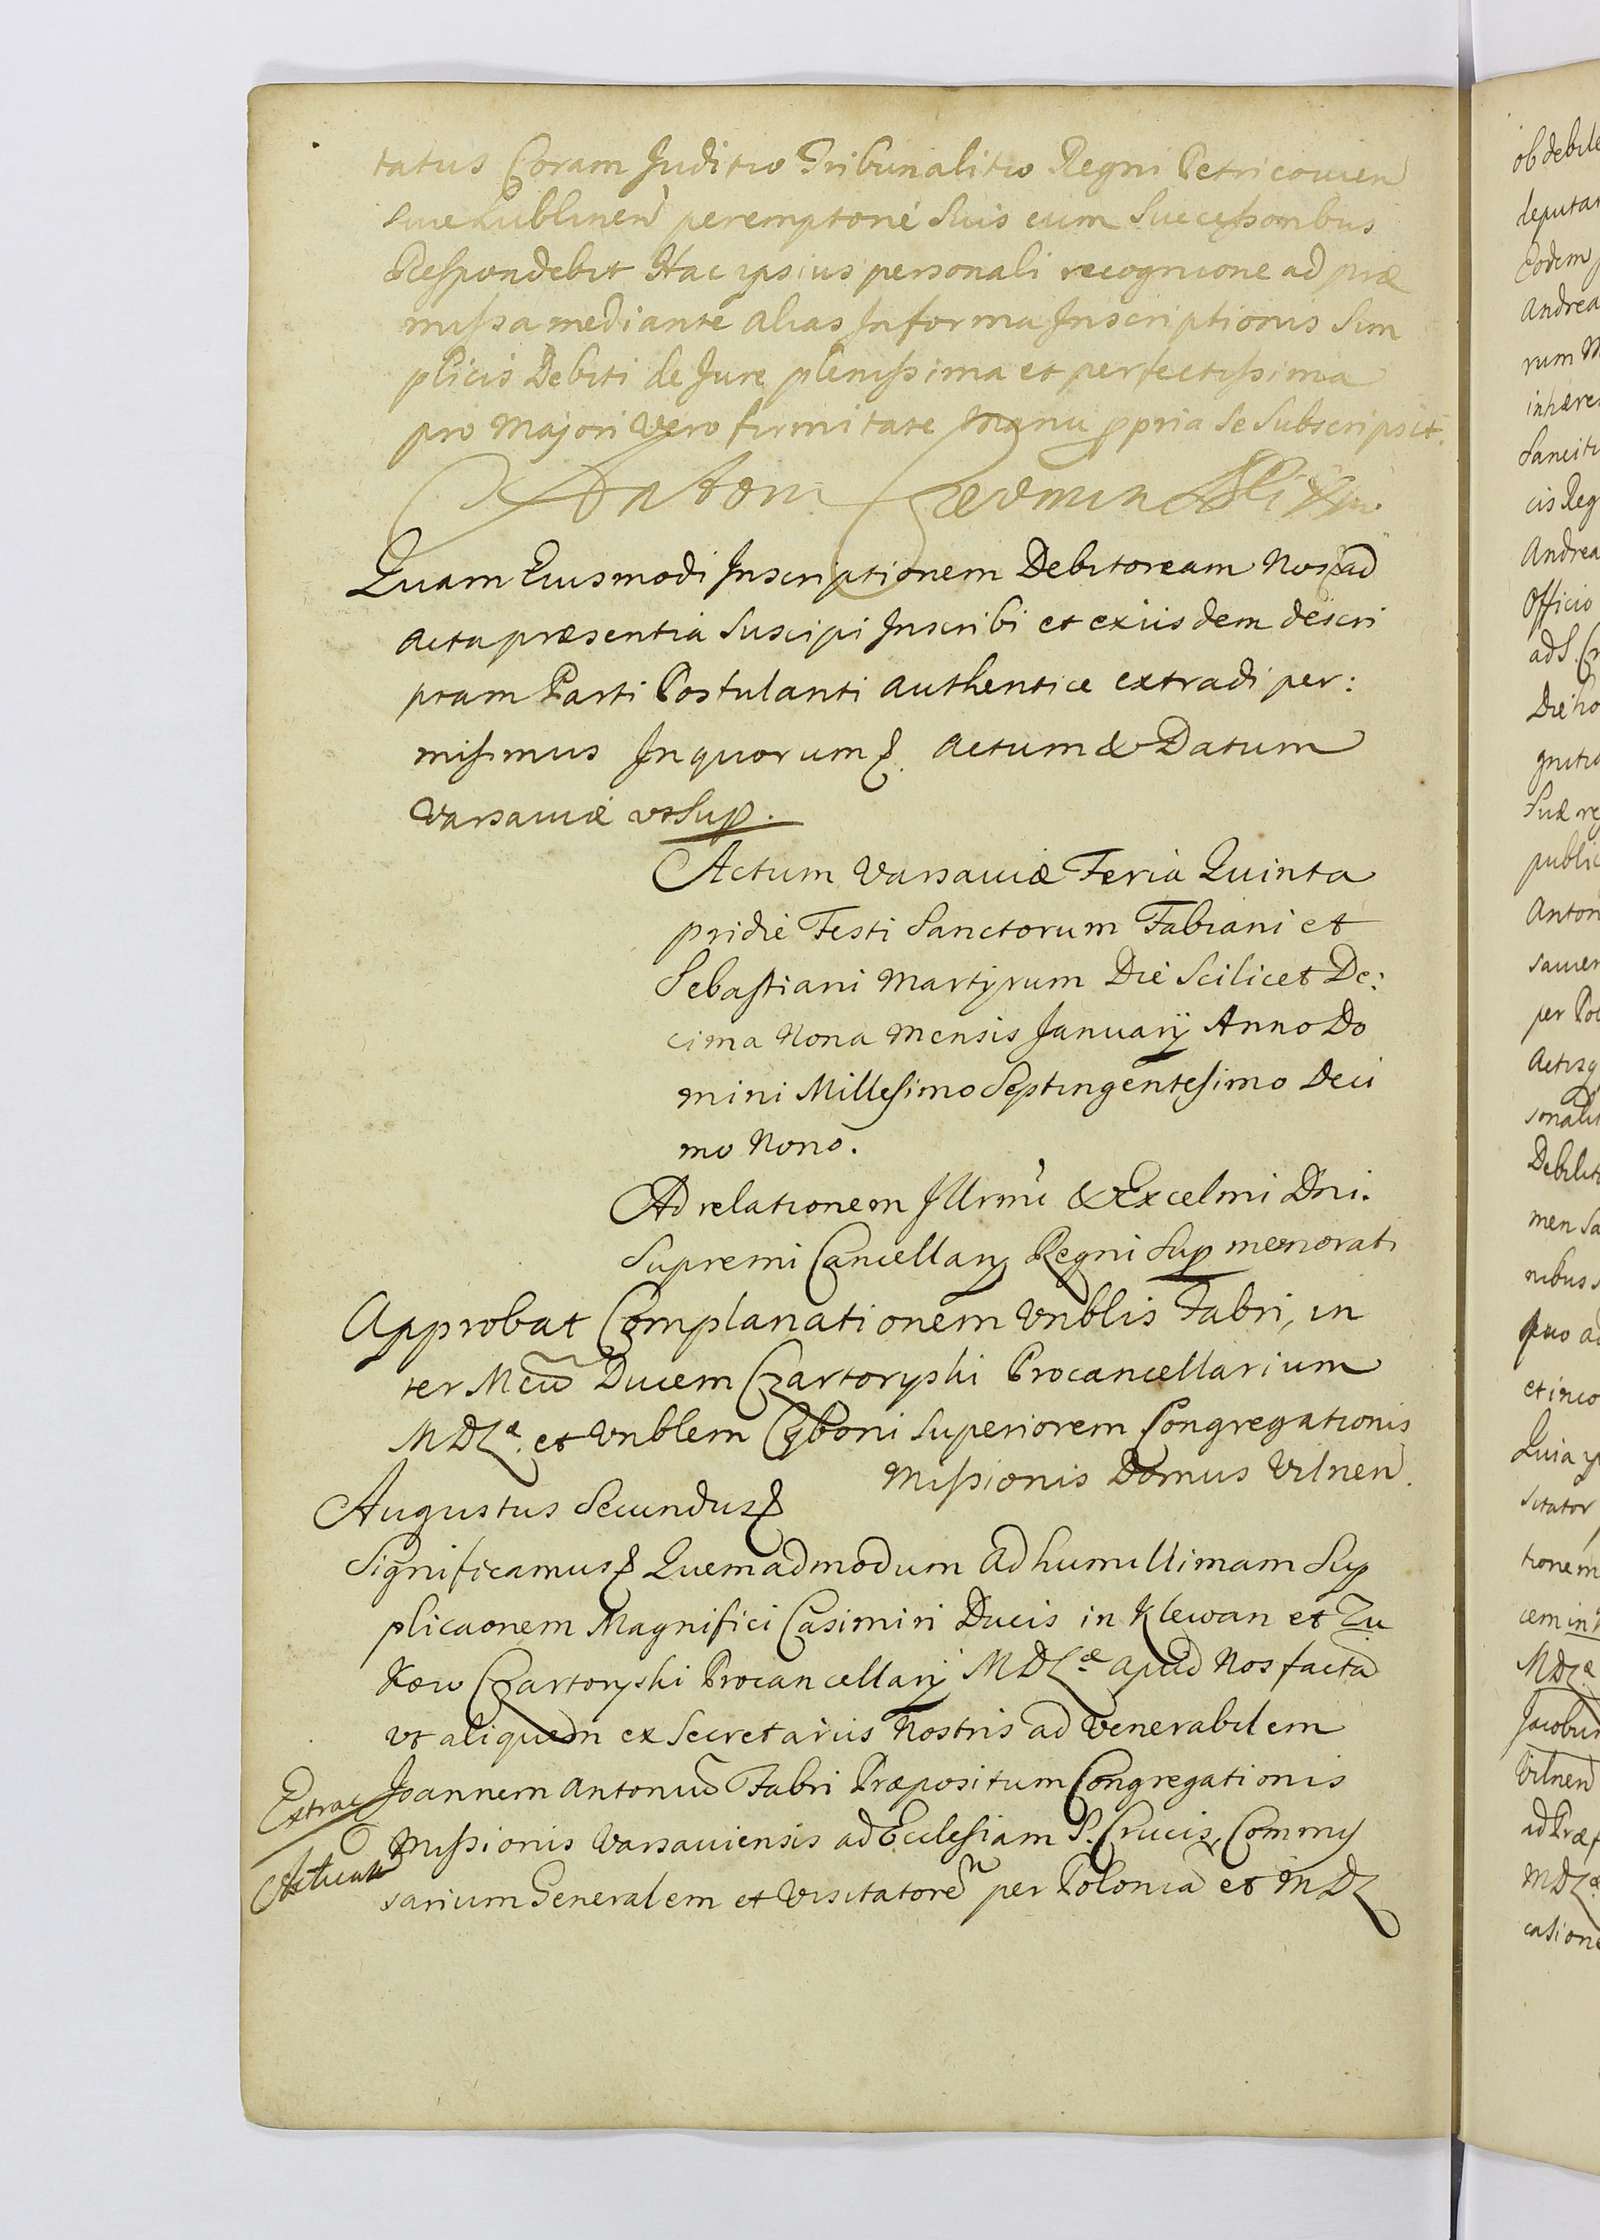 tatus Coram Juditio Tribunalitio Regni Petricovien
sive Lublinen peremptorie suis cum Successoribus
Respondebit Hac ipsius personali recognicione ad præ
missa mediante alias In forma Inscriptionis Sim
plicis Debiti de Jure plenissima et perfectissima
pro Majori Vero firmitate Manu ppria se Subscripsit.
Quam Eiusmodi Inscriptionem Debitoream Nos ad
acta præsentia Suscipi Inscribi et ex iisdem descri
ptam Parti Postulanti authentice extradi per:
misimus In quorum &. actum & Datum
Varsaviæ vt Sup.
Actum Varsaviæ Feria Quinta
pridie Festi Sanctorum Fabiani et
Sebastiani Martyrum Die Scilicet De:
cima Nona Mensis Januarij Anno Do
mini Millesimo Septingentesimo Deci
mo Nono.
Ad relationem Illrmi & Excelmi Dni.
Supremi Cancellarij Regni Sup memorati
Approbat Complanationem Vnblis Fabri, in
ter Mcum Ducem Czartoryski Procancellarium
MDLæ. et Vnblem Cyboni Superiorem Congregationis
Missionis Domus Vilnen.
Augustus Secundus &
Significamus & Quemadmodum ad humillimam Sup
plicaonem Magnifici Casimiri Ducis in Klewan et Zu
Kow Czartoryski Procancellarij MDLæ apud Nos facta
vt aliquem ex Secretariis Nostris ad Venerabilem
Joannem Antoniu Fabri Præpositum Congregationis
Extrac
Missionis Varsaviensis ad Ecclesiam S. Crucis, Commis
sarium Generalem et Visitatore per Polonia et MDL
ob debite
deputa
Eodem
Andrea
rum M
inhære
Sancit
cis Reg
Andrea
Officio
ad S. Cr
Die ho
gnitio
Suæ re
public
Anton
savien
per Pol
Actisq
sonalit
Debit
men Sa
nibus s
quo ad
et inco
Quia ip
sitator
tionem
cem in
MDLæ
Jacobu
Vilnen
ad Præf
MDLæ
casione